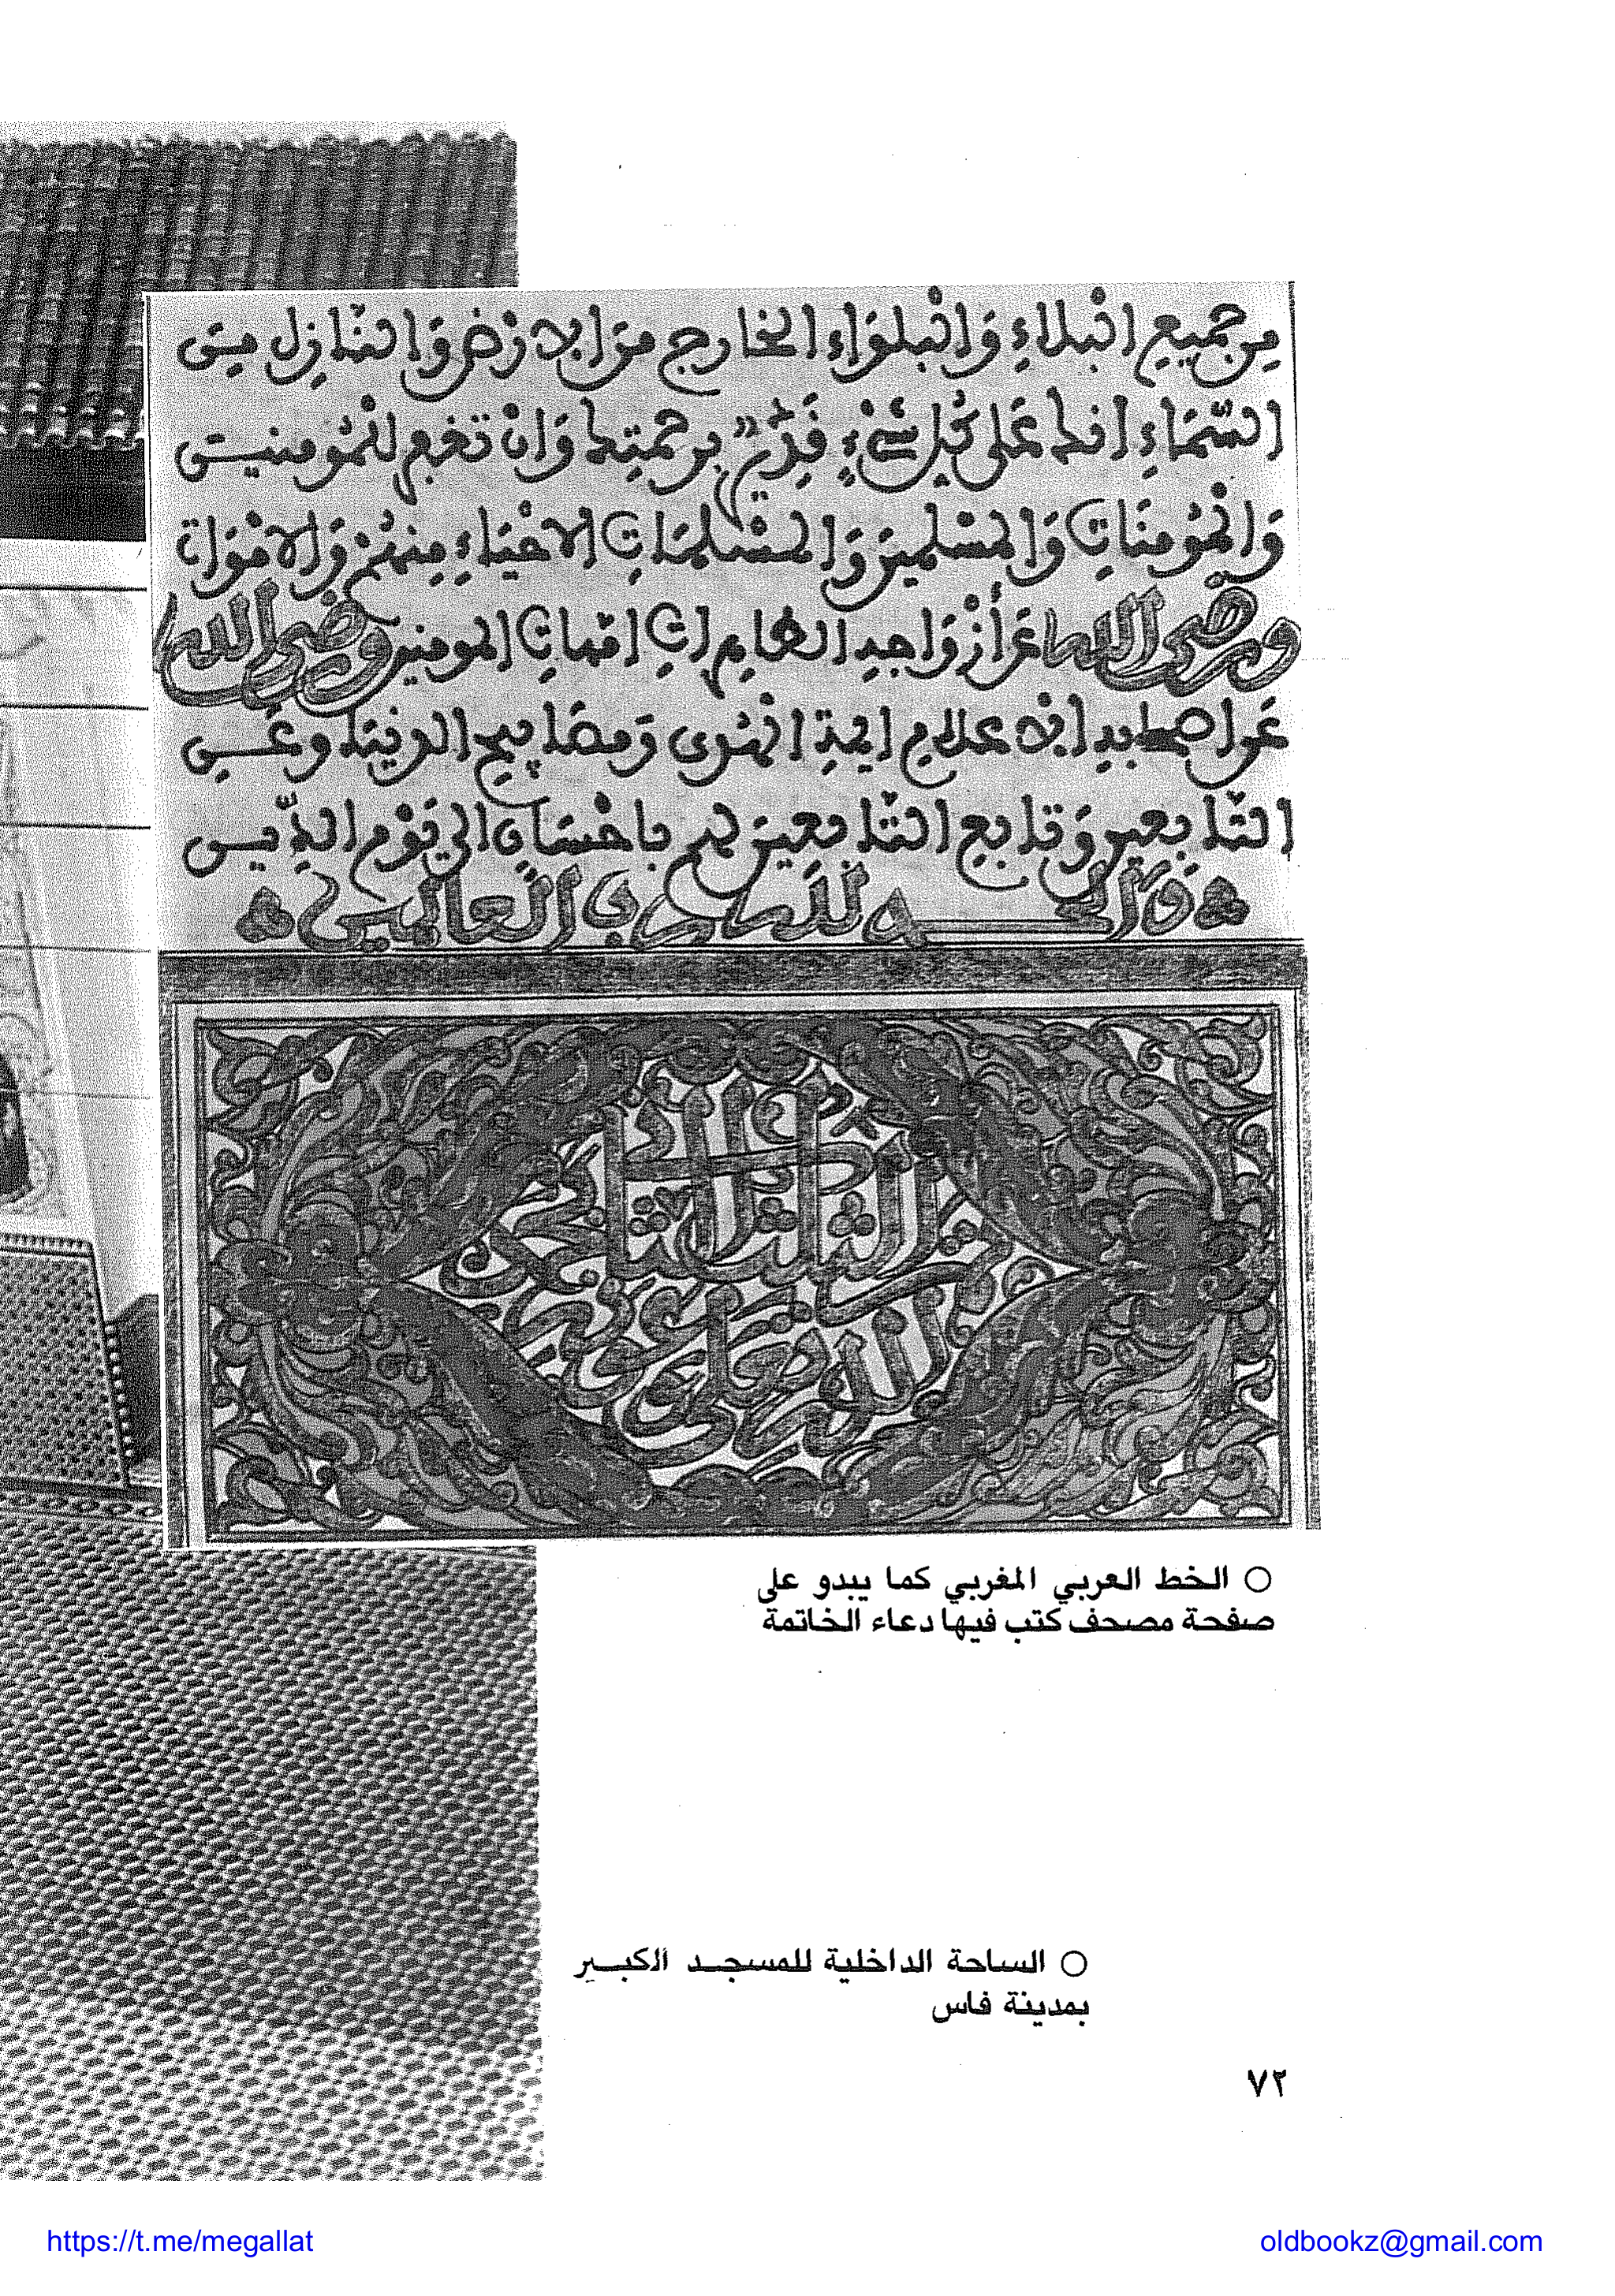 من جميع البلاء والبلواء الخارج من الارض والنازل من
السماء انك على كل شيء قدير برحمتك وان تغفر للمومنين
والمومنات والمسلمين والمسلمات الاحياء منهم والاموات
ورضي الله عن ازواجه الطاهرات امهات المومنين ورضي الله
عن اصحابه الاعلام ايمة الهدى ومصابيح الدنيا وعن
التابعين وتابع التابعين لهم باحسان الى يوم الدين
والحمد لله رب العالمين
○ الخط العربي المغربي كما يبدو على
صفحة مصحف كتب فيها دعاء الخاتمة
○ الساحة الداخلية للمسجد الكبير
بمدينة فاس
٧٢
https://t.me/megallat
oldbookz@gmail.com